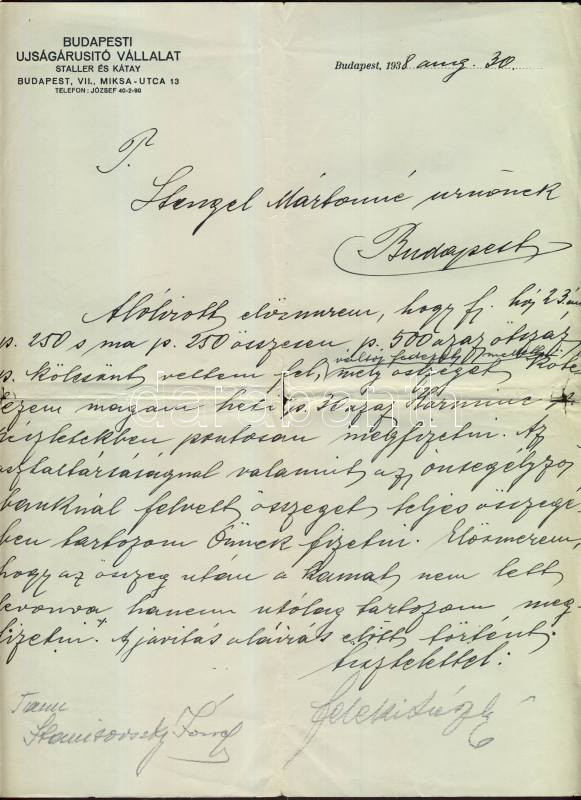 BUDAPESTI
UJSÁGÁRUSITÓ VÁLLALAT
STALLER ÉS KÁTAY
BUDAPEST, VII., MIKSA-UTCA 13
TELEFON: JÓZSEF 40-2-90
Budapest, 1938 aug. 30.
T.
Stengel Mártonné urnőnek
Budapest
Alólirott elösmerem, hogy f. hó 23án
p. 250 s ma p. 250 összesen p. 500 azaz ötszáz
váltój fedezet mellett
p. kölcsönt vettem fel, mely összeget köte
lezem magam heti p. 30 azaz Harminc p
részletekben pontosan megfizetni. Az
asztaltársaságnál valamint az önsegélyző
banknál felvett összeget teljes összegé
ben tartozom Önnek fizetni. Elösmerem,
hogy az összeg után a kamat nem lett
levonva hanem utólag tartozom meg-
fizetni. A javitás aláirás előtt történt.
tisztelettel:
Tanu
József